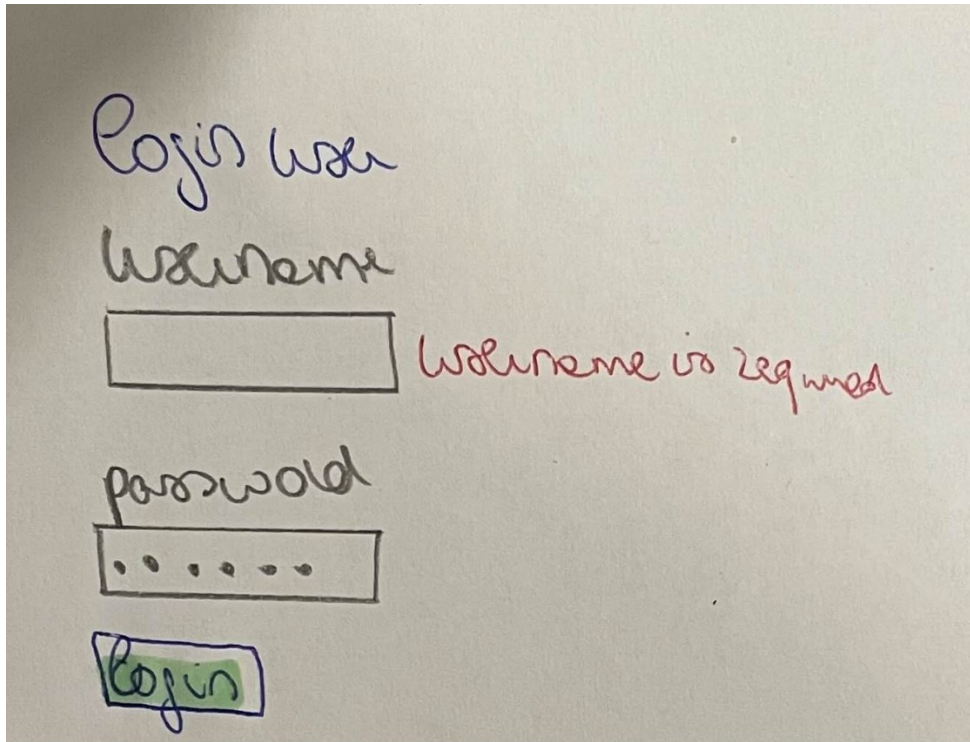 login user
username
username is required
password
login